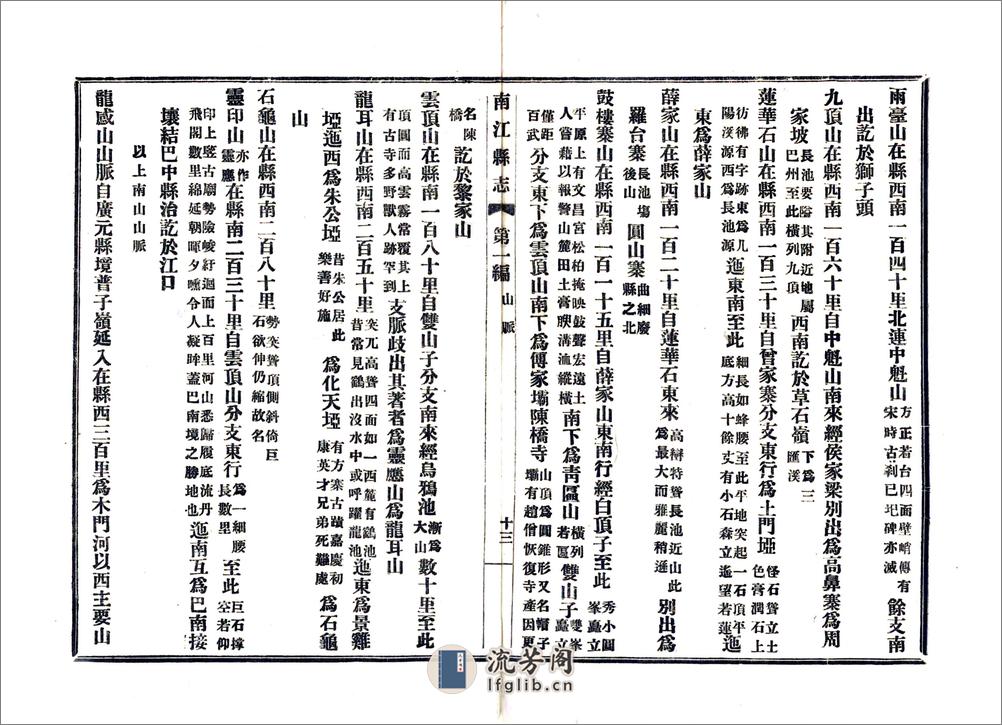 兩臺山在縣西南一百四十里北連中魁山方正若台四面壁峭傳有宋時古刹已圮碑亦滅餘支南
出訖於獅子頭
九頂山在縣西南一百六十里自中魁山南來經侯家梁別出爲高鼻寨爲周
家坡長池要隘其附近地屬巴州至此橫列九頂西南訖於草石嶺下爲三匯溪
蓮華石山在縣西南一百三十里自曾家寨分支東行爲土門埡怪石聳立土色膏潤石上
彷彿有字跡東爲几陽漢源西爲長池源迤東南至此細長如蜂腰至此平地突起一石頂平底方高十餘丈有小石森立遙望若蓮迤
東爲薛家山
薛家山在縣西南一百二十里自蓮華石東來高辯特聳長池近山此爲最大而雅麗稍遜別出爲
羅台寨長池塲後山圓山寨曲細廢縣之北
鼓樓寨山在縣西南一百一十五里自薛家山東南行經白頂子至此秀小圓峯矗立
平原上有文昌宮松柏掩映鼓聲宏遠土人嘗藉以報警山麓田土膏腴溝洫縱橫南下爲靑區山橫列若區雙山子雙峯矗立
僅距百武分支東下爲雲頂山南下爲傅家壩陳橋寺山頂爲圓錐形又名帽子壩有趙僧恢復寺產因更
南江縣志 第一編 山脈 十三
名陳橋訖於黎家山
雲頂山在縣南一百八十里自雙山子分支南來經烏鴉池漸爲大山數十里至此
頂圓而高雲霧常覆其上有古寺多野獸人跡罕到支脈歧出其著者爲靈應山爲龍耳山
龍耳山在縣西南二百五十里突兀高聳四面如一西麓有鶴池昔常見鶴出沒水中或呼躍龍池迤東爲景雞
埡迤西爲朱公埡昔朱公居此樂善好施爲化天埡有方寨古蹟嘉慶初康英才兄弟死難處爲石龜
山
石龜山在縣西南二百八十里勢突聳頂側斜倚巨石欲伸仍縮故名
靈印山亦作靈應在縣南二百三十里自雲頂山分支東行爲一細腰長數里至此巨石撐空若仰
印上竪古廟勢險峻紆迴而上百里河山悉歸履底流丹飛閣數里綿延朝暉夕曛令人凝眸蓋巴南境之勝地也迤南互爲巴南接
壤結巴中縣治訖於江口
以上南山山脈
龍感山山脈自廣元縣境普子嶺延入在縣西三百里爲木門河以西主要山
流芳閣
lfglib.cn